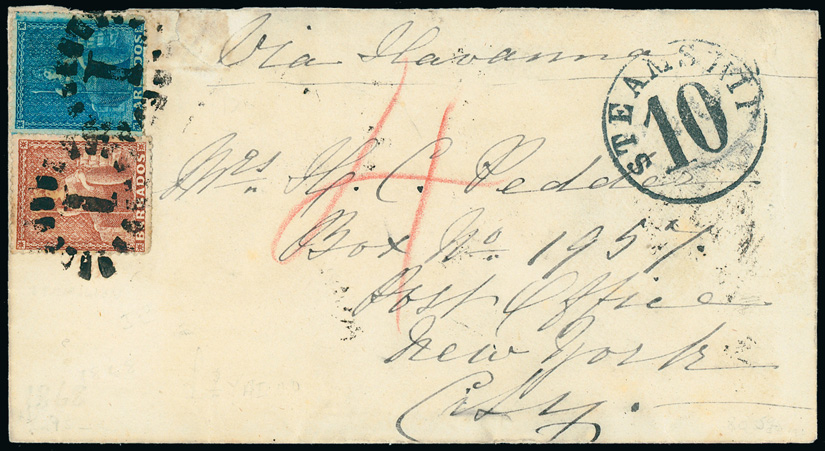 BARBADOS
1
BARBADOS
1
Via Havanna
STEAMSHIP
10
4
Mrs. H. C. Pedder
Box No 1957.
Post Office
New York
City.